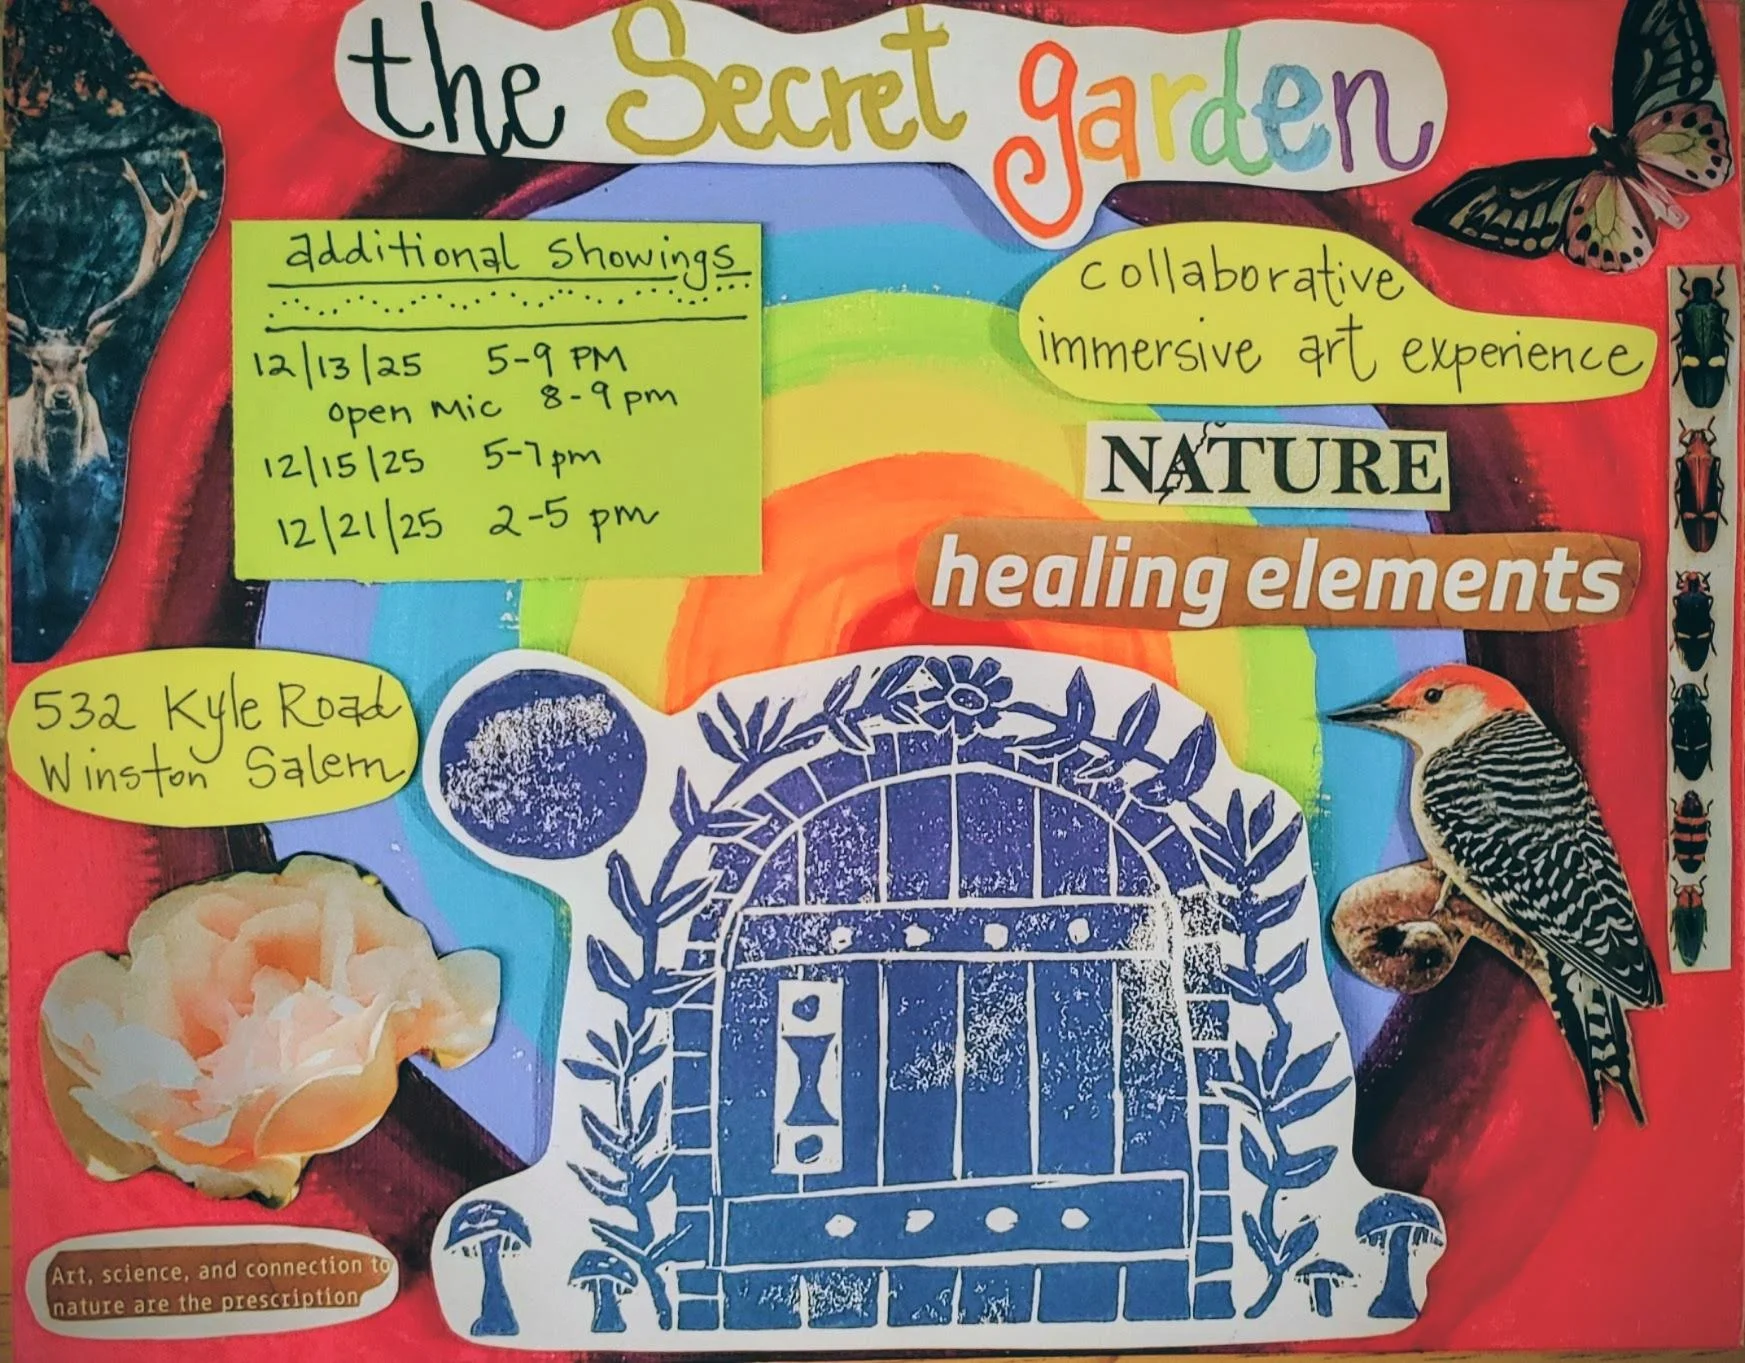 the Secret garden
additional showings
12/13/25 5-9 PM
open mic 8-9 pm
12/15/25 5-7pm
12/21/25 2-5 pm
collaborative
immersive art experience
NATURE
healing elements
532 Kyle Road
Winston Salem
Art, science, and connection to
nature are the prescription